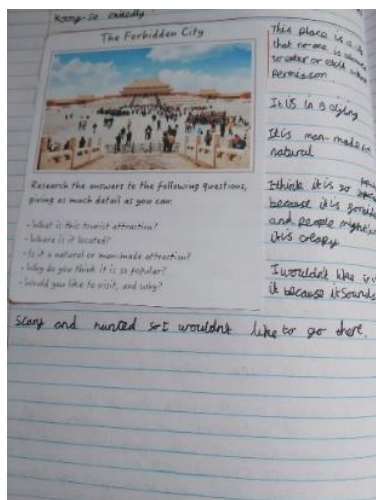 The Forbidden City
Research the answers to the following questions,
giving as much detail as you can:
- What is this tourist attraction?
- Where is it located?
- Is it a natural or man-made attraction?
- Why do you think it is so popular?
- Would you like to visit, and why?
This place is a
that no one is
to enter or exit
Permission
It is in
It is man-made
natural
I think it is so
because it is
and people might
it is creapy
I wouldn't like
it because it sounds
Scary and hunted so I wouldn't like to go there.